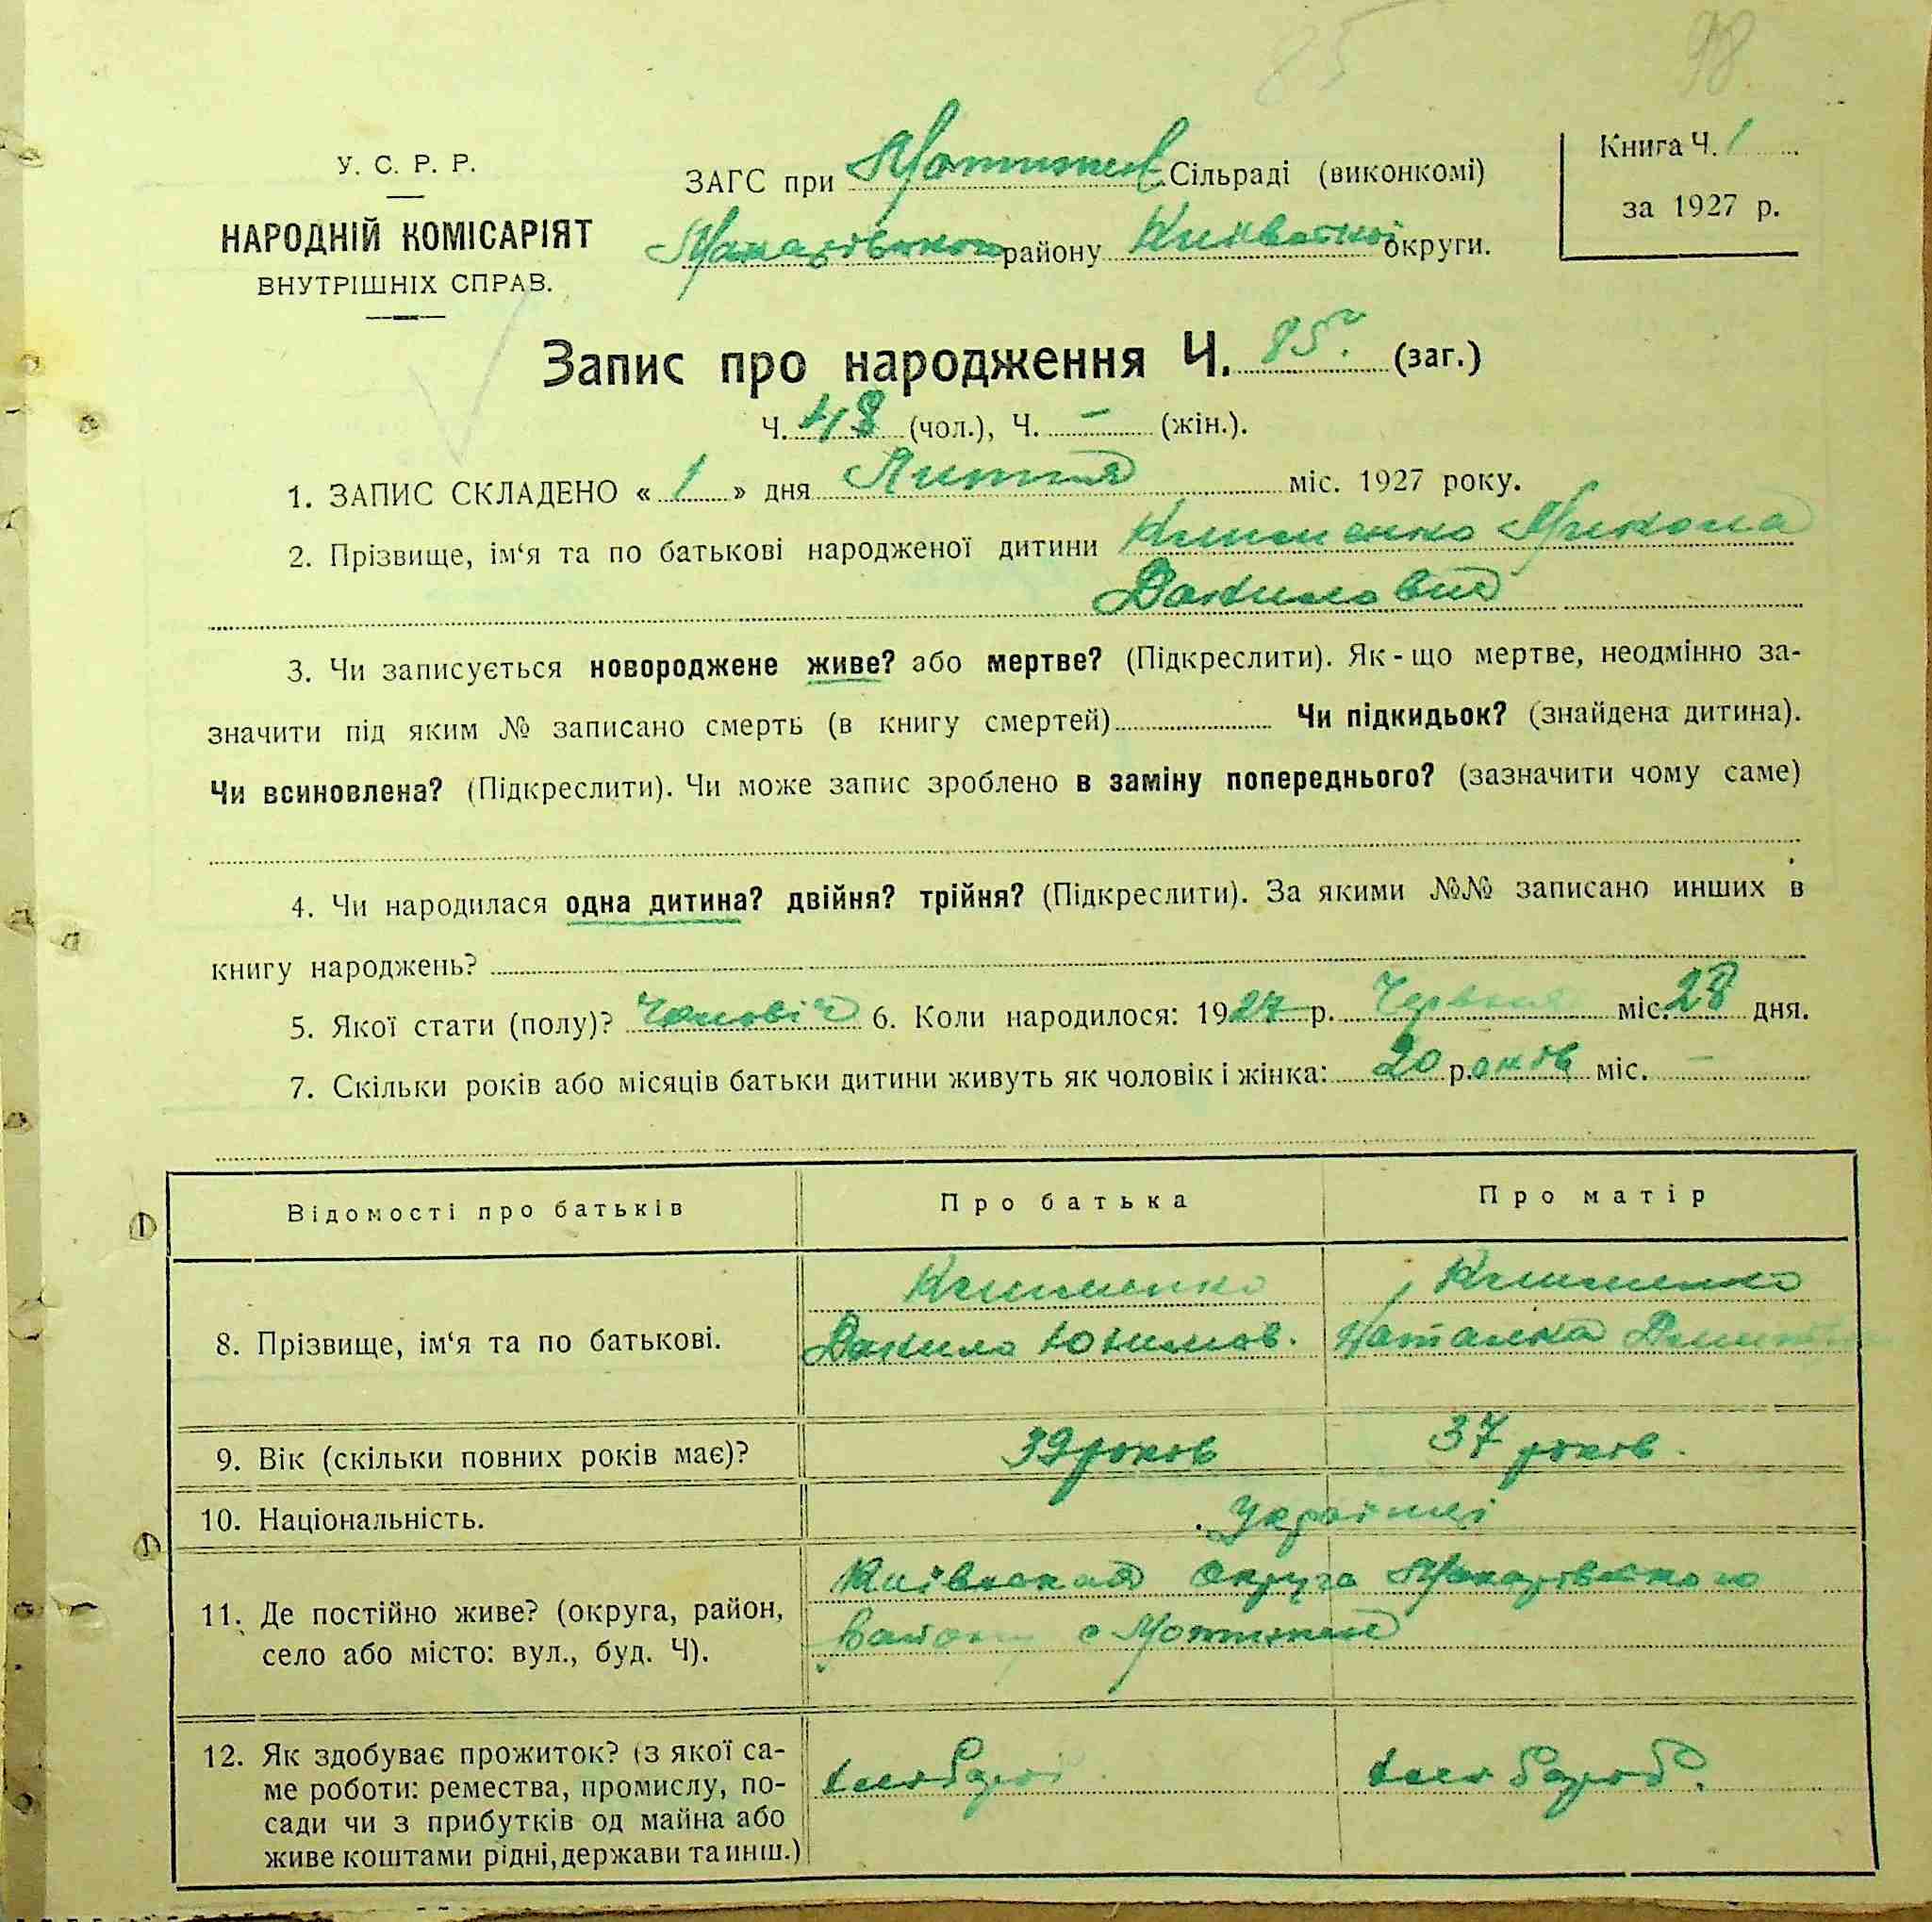 85
98
У. С. Р. Р.
НАРОДНІЙ КОМІСАРІЯТ
ВНУТРІШНІХ СПРАВ.
ЗАГС при Мотижен. Сільраді (виконкомі)
Макарівського району Київської округи.
Книга Ч. 1
за 1927 р.
Запис про народження Ч. 85 (заг.)
Ч. 48 (чол.), Ч. – (жін.).
1. ЗАПИС СКЛАДЕНО « 1 » дня Липня міс. 1927 року.
2. Прізвище, ім‘я та по батькові народженої дитини Клименко Микола
Данилович
3. Чи записується новороджене живе? або мертве? (Підкреслити). Як-що мертве, неодмінно за-
значити під яким № записано смерть (в книгу смертей) Чи підкидьок? (знайдена дитина).
Чи всиновлена? (Підкреслити). Чи може запис зроблено в заміну попереднього? (зазначити чому саме)
4. Чи народилася одна дитина? двійня? трійня? (Підкреслити). За якими №№ записано инших в
книгу народжень?
5. Якої стати (полу)? Чоловіч 6. Коли народилося: 1927 р. Червня міс. 28 дня.
7. Скільки років або місяців батьки дитини живуть як чоловік і жінка: 20 років міс. –
Відомості про батьків Про батька Про матір
8. Прізвище, ім‘я та по батькові. Клименко Данило Юхимов. Клименко Наталка
9. Вік (скільки повних років має)? 39 років 37 років.
10. Національність. Українці
11. Де постійно живе? (округа, район,
село або місто: вул., буд. Ч).
Київская округа Макарівського
району с Мотижен
12. Як здобуває прожиток? (з якої са-
ме роботи: ремества, промислу, по-
сади чи з прибутків од майна або
живе коштами рідні, держави та инш.)
хлебороб.